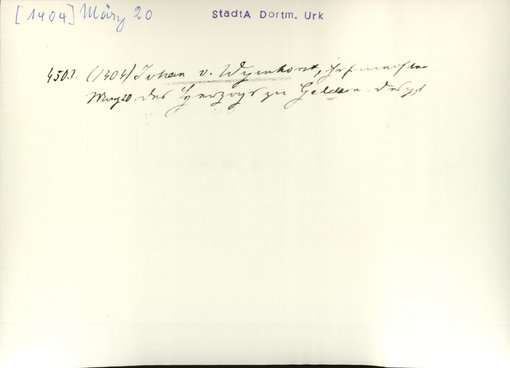 [1404] März 20
StadtA Dortm. Urk
450.2. (1404) Johan v. Wyenhorst, Hofmeister
März 20 des Herzogs zu Geldern